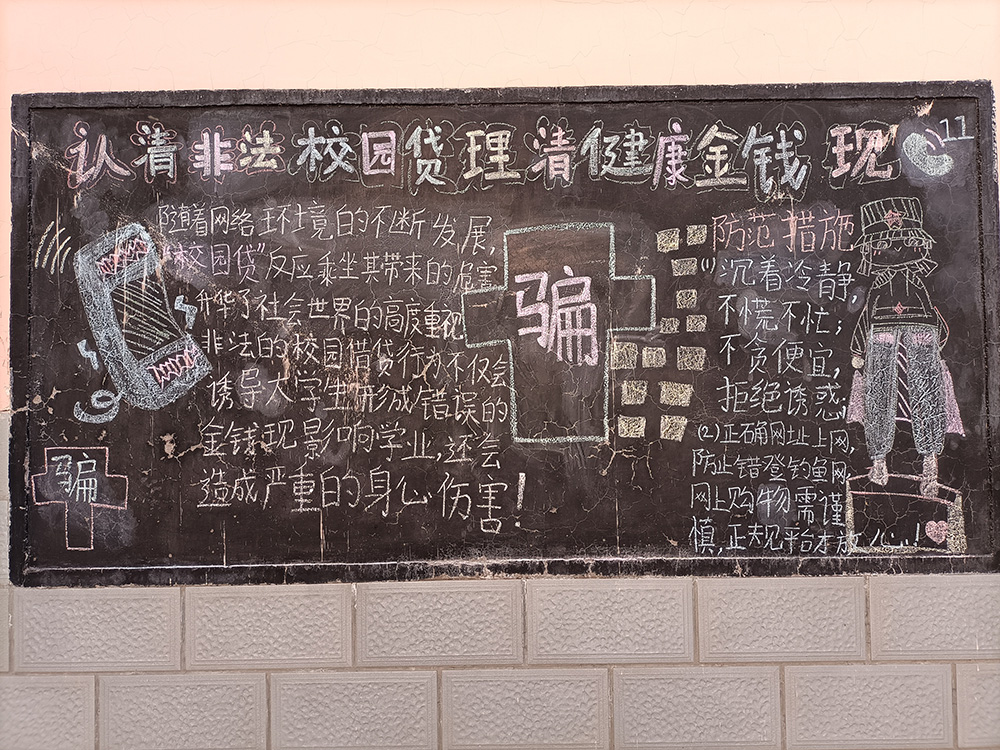 认清非法校园贷 理清健康金钱现
11
随着网络环境的不断发展,
"校园贷"反应乘坐其带来的危害
升华了社会世界的高度重视
非法的校园借贷行为不仅会
诱导大学生形成错误的
金钱现影响学业,还会
造成严重的身心伤害!
骗
骗
防范措施
(1)沉着冷静,
不慌不忙;
不贪便宜,
拒绝诱惑;
(2)正确网址上网,
防止错登钓鱼网,
网上购物需谨
慎,正规平台才放心!